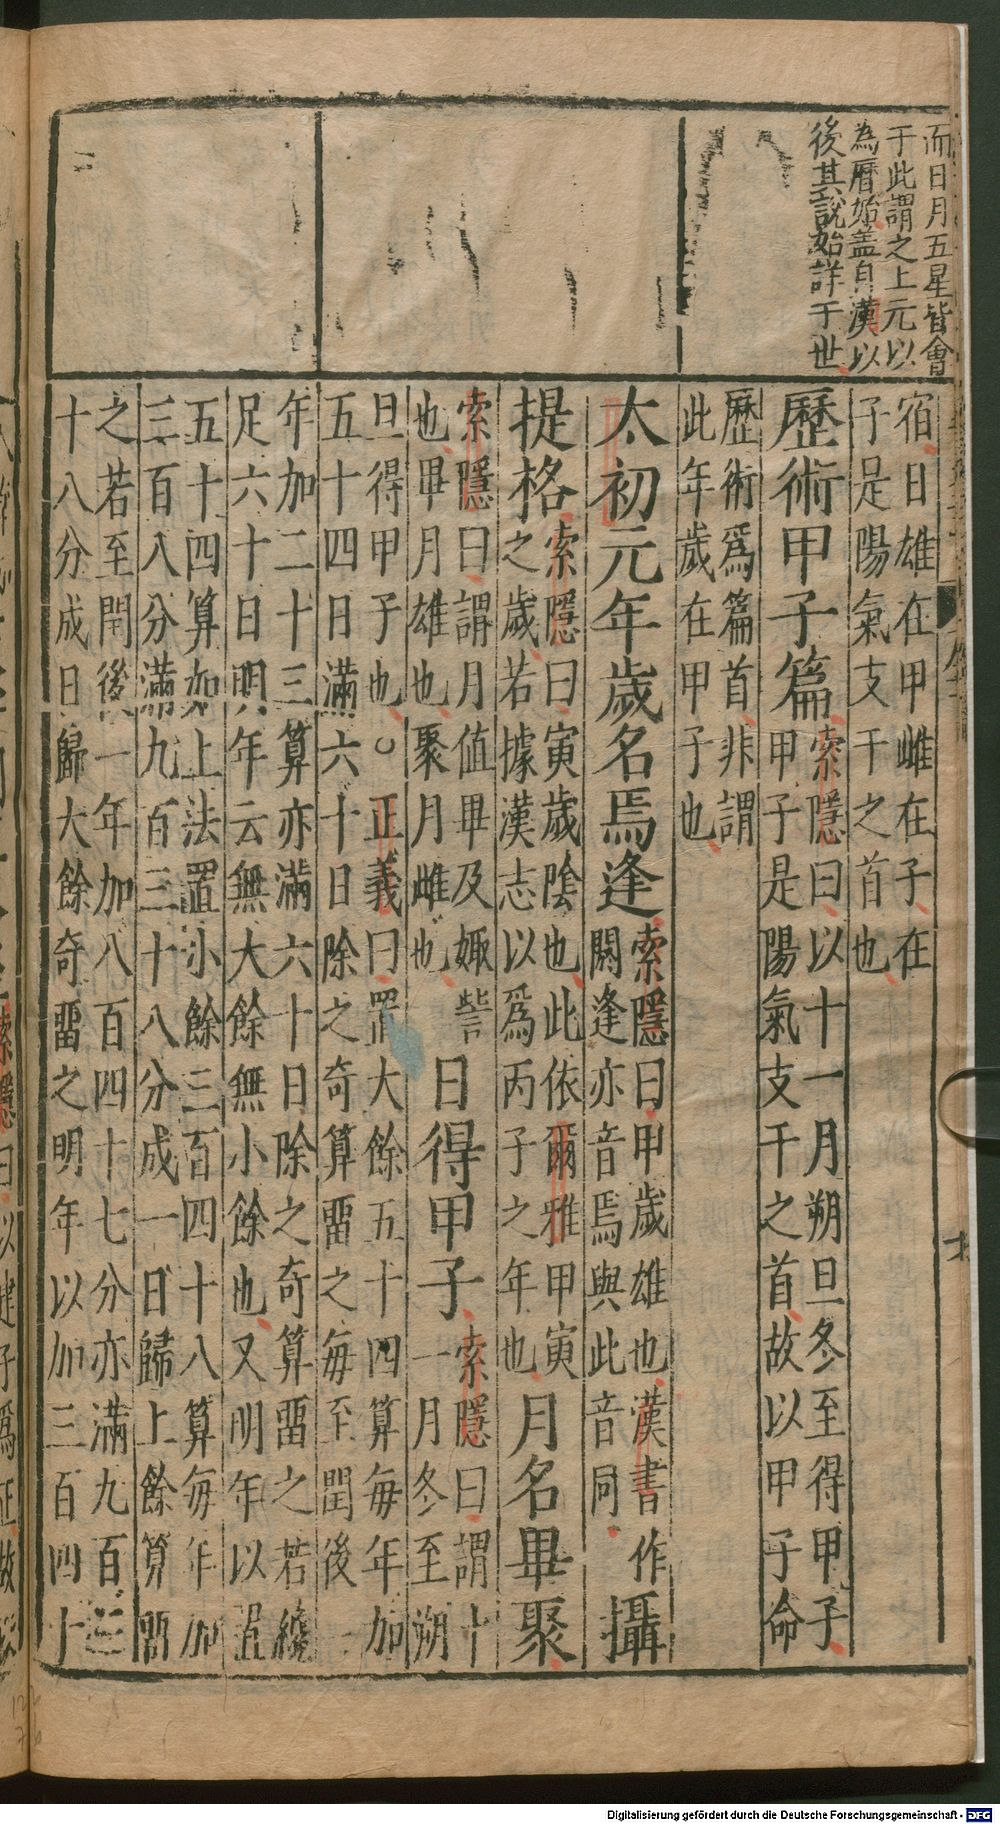 而日月五星皆會
于此謂之上元以
為曆始盖自漢以
後其說始詳于世
宿日雄在甲雌在子在
子是陽氣支干之首也
歷術甲子篇
索隱曰以十一月朔旦冬至得甲子
甲子是陽氣支干之首故以甲子命
歷術爲篇首非謂
此年歲在甲子也
太初元年歲名焉逢
索隱曰甲歲雄也漢書作
閼逢亦音焉與此音同
攝
提格
索隱曰寅歲隂也此依爾雅甲寅
之歲若據漢志以爲丙子之年也
月名畢聚
索隱曰謂月值畢及娵訾
也畢月雄也聚月雌也
日得甲子
索隱曰謂十
一月冬至朔
旦得甲子也
正義曰
大餘五十四算每年加
五十四日滿六十日除之奇算畱之每至閏後一
年加二十三算亦滿六十日除之奇算畱之若纔
足六十日明年云無大餘無小餘也又明年以置
五十四算如上法置小餘三百四十八算每年加
三百八分滿九百三十八分成一日歸上餘算畱
之若至閏後一年加八百四十七分亦滿九百三
十八分成日歸大餘奇畱之明年以加三百四十
索隱曰以建子爲正故
Digitalisierung gefördert durch die Deutsche Forschungsgemeinschaft - DFG